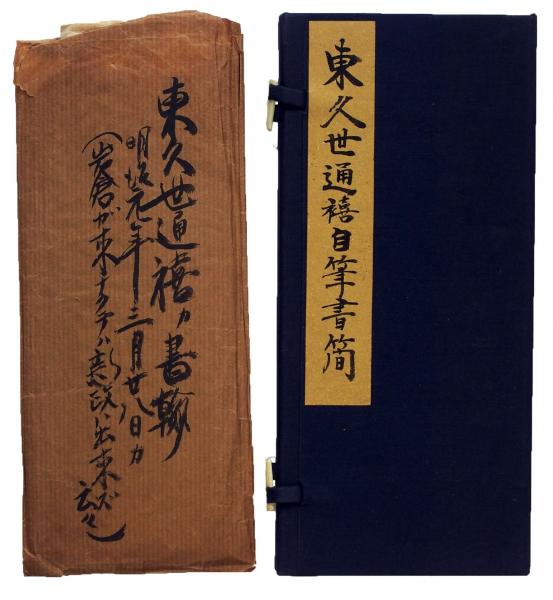 東久世通禧自筆書簡
東久世通禧カ書翰
明治元年三月廿八日カ
(岩倉ガ来ナクテハ新政ハ出来ズ云々)